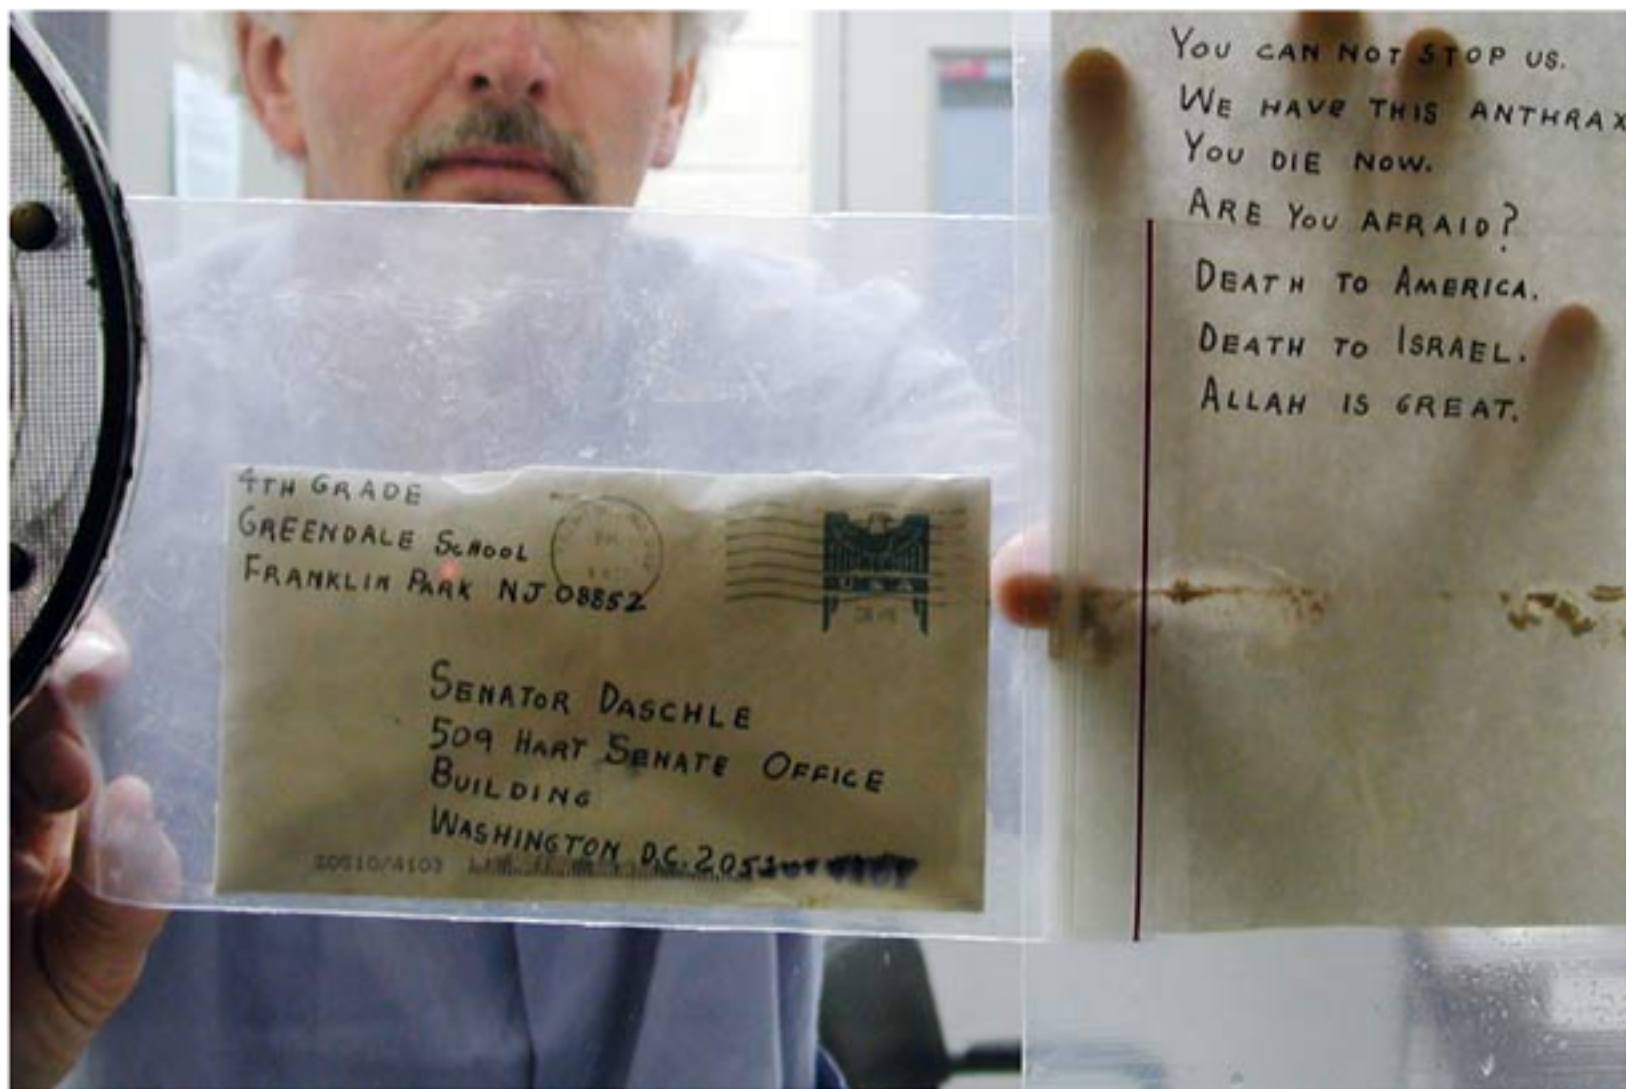 4TH GRADE
GREENDALE SCHOOL
FRANKLIN PARK NJ 08852
USA
SENATOR DASCHLE
509 HART SENATE OFFICE
BUILDING
WASHINGTON D.C. 2051
20510/4103
YOU CAN NOT STOP US.
WE HAVE THIS ANTHRAX
YOU DIE NOW.
ARE YOU AFRAID?
DEATH TO AMERICA.
DEATH TO ISRAEL.
ALLAH IS GREAT.